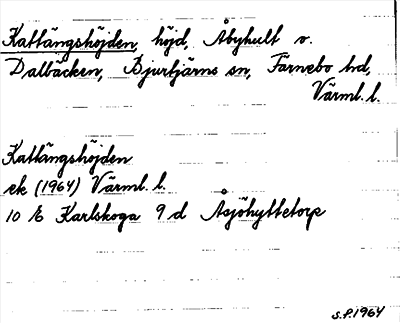 Kattängshöjden, höjd, Åbyhult v.
Dalbäcken, Bjurtjärns sn, Färnebo hd,
Värml. l.
Kattängshöjden
ek (1964) Värml. l.
10 E Karlskoga 9 d Åsjöhyttetorp
S.P. 1964